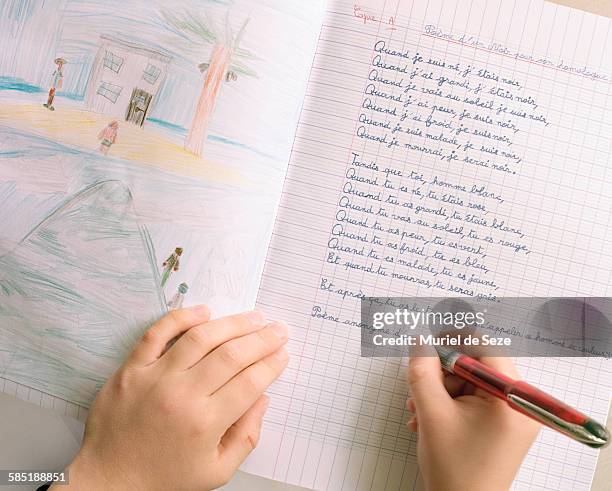 Copie A
Poème d'un Noir pour son homologue
Quand je suis né, j'étais noir,
Quand j'ai grandi, j'étais noir,
Quand je vais au soleil je suis noir,
Quand j'ai peur, je suis noir,
Quand j'ai froid, je suis noir,
Quand je suis malade, je suis noir,
Quand je mourrai, je serai noir.
Tandis que toi, homme blanc,
Quand tu es né, tu étais rose
Quand tu as grandi, tu étais blanc,
Quand tu vas au soleil, tu es rouge,
Quand tu as peur, tu es vert,
Quand tu as froid, tu es bleu,
Quand tu es malade, tu es jaune,
Et quand tu mourras, tu seras gris.
Et après ça, tu as le appeler « homme de couleur
Poème anonyme
Credit: Muriel de Seze
585188851